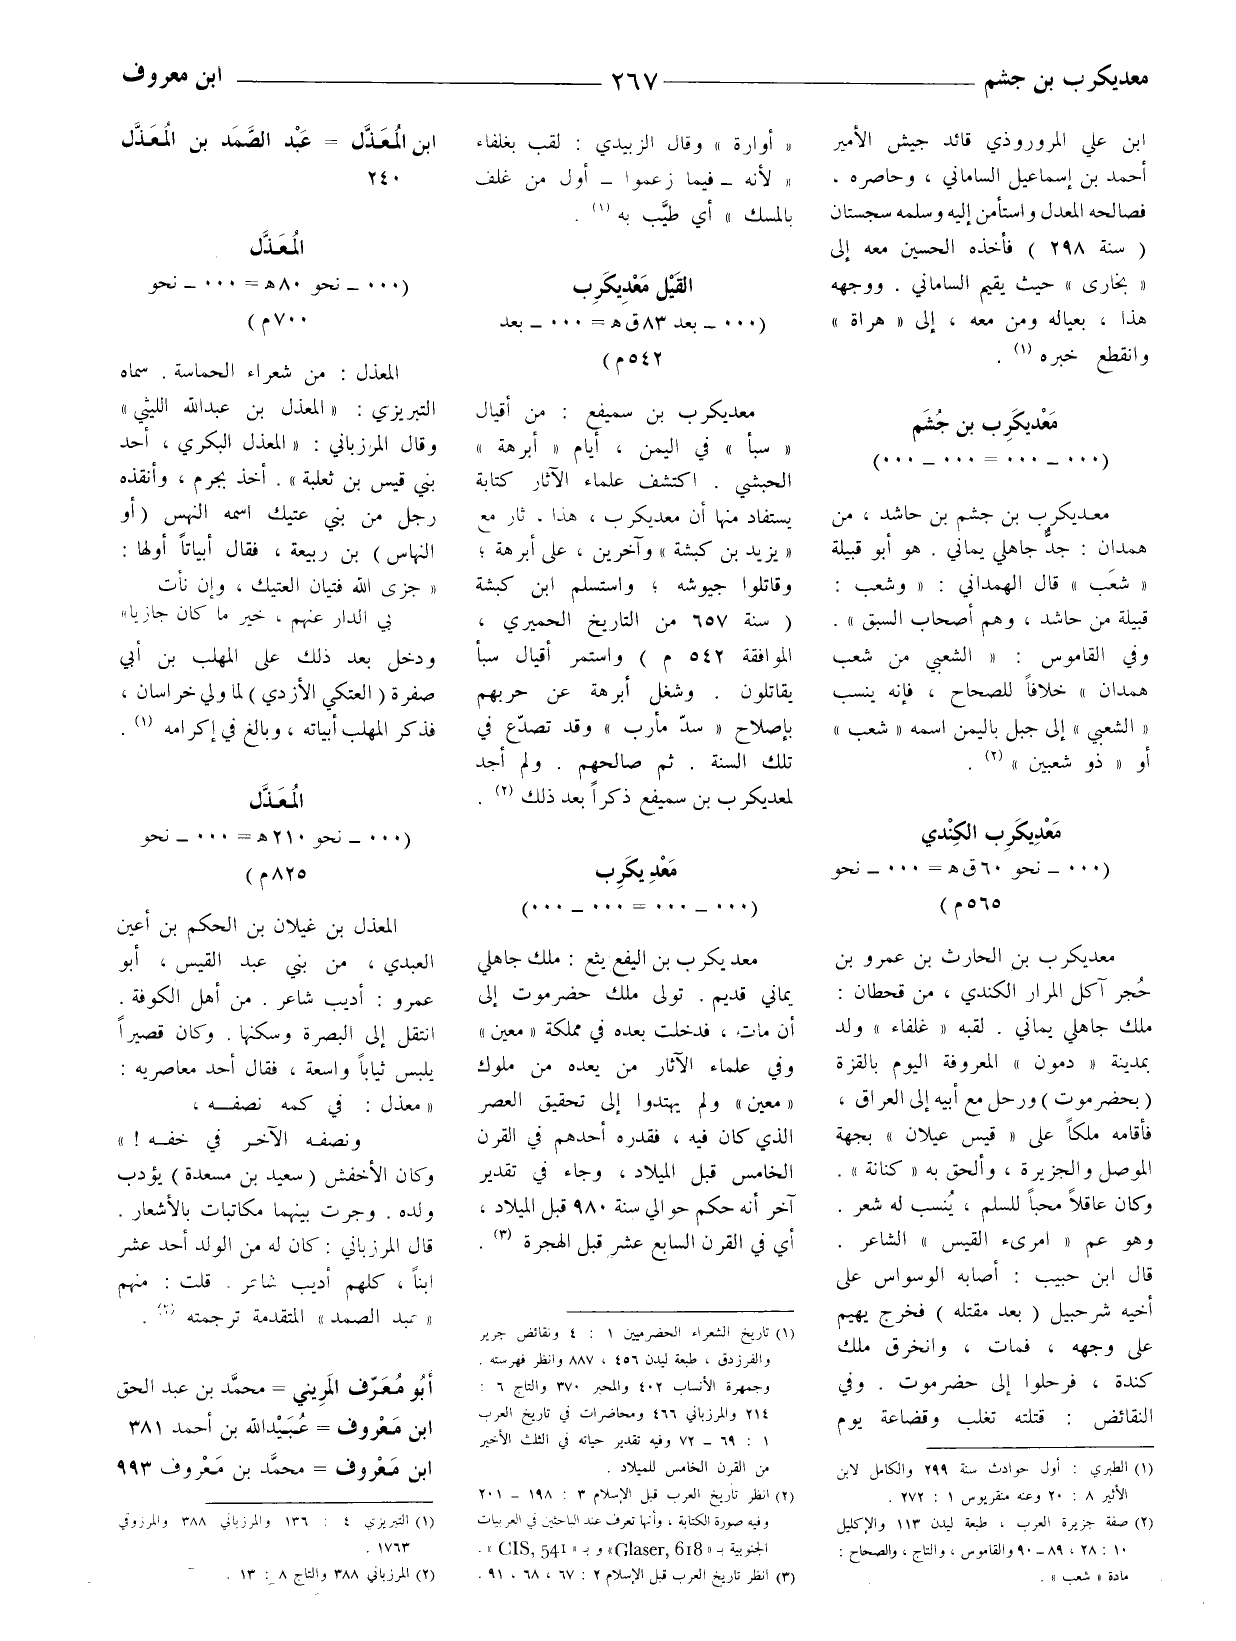 معديكرب بن جشم ــــ ٢٦٧ ــــ ابن معروف
ابن علي المروروذي قائد جيش الأمير
أحمد بن إسماعيل الساماني ، وحاصره .
فصالحه المعدل واستأمن إليه وسلمه سجستان
( سنة ٢٩٨ ) فأخذه الحسين معه إلى
« بخارى » حيث يقيم الساماني . ووجهه
هذا ، بعياله ومن معه ، إلى « هراة »
وانقطع خبره (١) .
مَعْدِيكَرِب بن جُشَم
(٠٠٠ ــ ٠٠٠ = ٠٠٠ ــ ٠٠٠)
معديكرب بن جشم بن حاشد ، من
همدان : جدٌّ جاهلي يماني . هو أبو قبيلة
« شعَب » قال الهمداني : « وشعب :
قبيلة من حاشد ، وهم أصحاب السبق » .
وفي القاموس : « الشعبي من شعب
همدان » خلافاً للصحاح ، فإنه ينسب
« الشعبي » إلى جبل باليمن اسمه « شعب »
أو « ذو شعبين » (٢) .
مَعْدِيكَرِب الكِنْدي
(٠٠٠ ــ نحو ٦٠ق ه = ٠٠٠ ــ نحو
٥٦٥م)
معديكرب بن الحارث بن عمرو بن
حُجر آكل المرار الكندي ، من قحطان :
ملك جاهلي يماني . لقبه « غلفاء » ولد
بمدينة « دمون » المعروفة اليوم بالقزة
( بحضرموت ) ورحل مع أبيه إلى العراق ،
فأقامه ملكاً على « قيس عيلان » بجهة
الموصل والجزيرة ، وألحق به « كنانة » .
وكان عاقلاً محباً للسلم ، يُنسب له شعر .
وهو عم « امرىء القيس » الشاعر .
قال ابن حبيب : أصابه الوسواس على
أخيه شرحبيل ( بعد مقتله ) فخرج يهيم
على وجهه ، فمات ، وانخرق ملك
كندة ، فرحلوا إلى حضرموت . وفي
النقائض : قتلته تغلب وقضاعة يوم
(١) الطبري : أول حوادث سنة ٢٩٩ والكامل لابن
الأثير ٨ : ٢٠ وعنه منقريوس ١ : ٢٧٢ .
(٢) صفة جزيرة العرب ، طبعة ليدن ١١٣ والإكليل
١٠ : ٢٨ ، ٨٩ ــ ٩٠ والقاموس ، والتاج ، والصحاح :
مادة « شعب » .
« أوارة » وقال الزبيدي : لقب بغلفاء
« لأنه ــ فيما زعموا ــ أول من غلف
بالمسك » أي طيَّب به (١) .
القَيْل مَعْدِيكَرِب
(٠٠٠ ــ بعد ٨٣ق ه = ٠٠٠ ــ بعد
٥٤٢م)
معديكرب بن سميفع : من أقيال
« سبأ » في اليمن ، أيام « أبرهة »
الحبشي . اكتشف علماء الآثار كتابة
يستفاد منها أن معديكرب ، هذا . ثار مع
« يزيد بن كبشة » وآخرين ، على أبرهة ؛
وقاتلوا جيوشه ؛ واستسلم ابن كبشة
( سنة ٦٥٧ من التاريخ الحميري ،
الموافقة ٥٤٢ م ) واستمر أقيال سبأ
يقاتلون . وشغل أبرهة عن حربهم
بإصلاح « سدّ مأرب » وقد تصدّع في
تلك السنة . ثم صالحهم . ولم أجد
لمعديكرب بن سميفع ذكراً بعد ذلك (٢) .
مَعْدِيكَرِب
(٠٠٠ ــ ٠٠٠ = ٠٠٠ ــ ٠٠٠)
معديكرب بن اليفع يثع : ملك جاهلي
يماني قديم . تولى ملك حضرموت إلى
أن مات ، فدخلت بعده في مملكة « معين »
وفي علماء الآثار من يعده من ملوك
« معين » ولم يهتدوا إلى تحقيق العصر
الذي كان فيه ، فقدره أحدهم في القرن
الخامس قبل الميلاد ، وجاء في تقدير
آخر أنه حكم حوالي سنة ٩٨٠ قبل الميلاد ،
أي في القرن السابع عشر قبل الهجرة (٣) .
(١) تاريخ الشعراء الحضرميين ١ : ٤ ونقائض جرير
والفرزدق ، طبعة ليدن ٤٥٦ ، ٨٨٧ وانظر فهرسته .
وجمهرة الأنساب ٤٠٢ والمحبر ٣٧٠ والتاج ٦ :
٢١٤ والمرزباني ٤٦٦ ومحاضرات في تاريخ العرب
١ : ٦٩ ــ ٧٢ وفيه تقدير حياته في الثلث الأخير
من القرن الخامس للميلاد .
(٢) انظر تاريخ العرب قبل الإسلام ٣ : ١٩٨ ــ ٢٠١
وفيه صورة الكتابة ، وأنها تعرف عند الباحثين في العربيات
الجنوبية بـ « Glaser, 618» و بـ « CIS, 541 » .
(٣) انظر تاريخ العرب قبل الإسلام ٢ : ٦٧ ، ٦٨ ، ٩١ .
ابن المُعَذَّل = عَبْد الصَّمَد بن المُعَذَّل
٢٤٠
المُعَذَّل
(٠٠٠ ــ نحو ٨٠ه = ٠٠٠ ــ نحو
٧٠٠م)
المعذل : من شعراء الحماسة . سماه
التبريزي : « المعذل بن عبدالله الليثي »
وقال المرزباني : « المعذل البكري ، أحد
بني قيس بن ثعلبة » . أخذ بجرم ، وأنقذه
رجل من بني عتيك اسمه النهس (أو
النهاس ) بن ربيعة ، فقال أبياتاً أولها :
« جزى الله فتيان العتيك ، وإن نأت
بي الدار عنهم ، خير ما كان جازيا»
ودخل بعد ذلك على المهلب بن أبي
صفرة ( العتكي الأزدي ) لما ولي خراسان ،
فذكر المهلب أبياته ، وبالغ في إكرامه (١) .
المُعَذَّل
(٠٠٠ ــ نحو ٢١٠ه = ٠٠٠ ــ نحو
٨٢٥م)
المعذل بن غيلان بن الحكم بن أعين
العبدي ، من بني عبد القيس ، أبو
عمرو : أديب شاعر . من أهل الكوفة .
انتقل إلى البصرة وسكنها . وكان قصيراً
يلبس ثياباً واسعة ، فقال أحد معاصريه :
« معذل : في كمه نصفــه ،
ونصفه الآخر في خفــه ! »
وكان الأخفش ( سعيد بن مسعدة ) يؤدب
ولده . وجرت بينهما مكاتبات بالأشعار .
قال المرزباني : كان له من الولد أحد عشر
ابناً ، كلهم أديب شاعر . قلت : منهم
« عبد الصمد » المتقدمة ترجمته (٢) .
أبُو مُعَرِّف المَريني = محمَّد بن عبد الحق
ابن مَعْروف = عُبَيْدالله بن أحمد ٣٨١
ابن مَعْروف = محمَّد بن مَعْروف ٩٩٣
(١) التبريزي ٤ : ١٣٦ والمرزباني ٣٨٨ والمرزوقي
١٧٦٣ .
(٢) المرزباني ٣٨٨ والتاج ٨ : ١٣ .